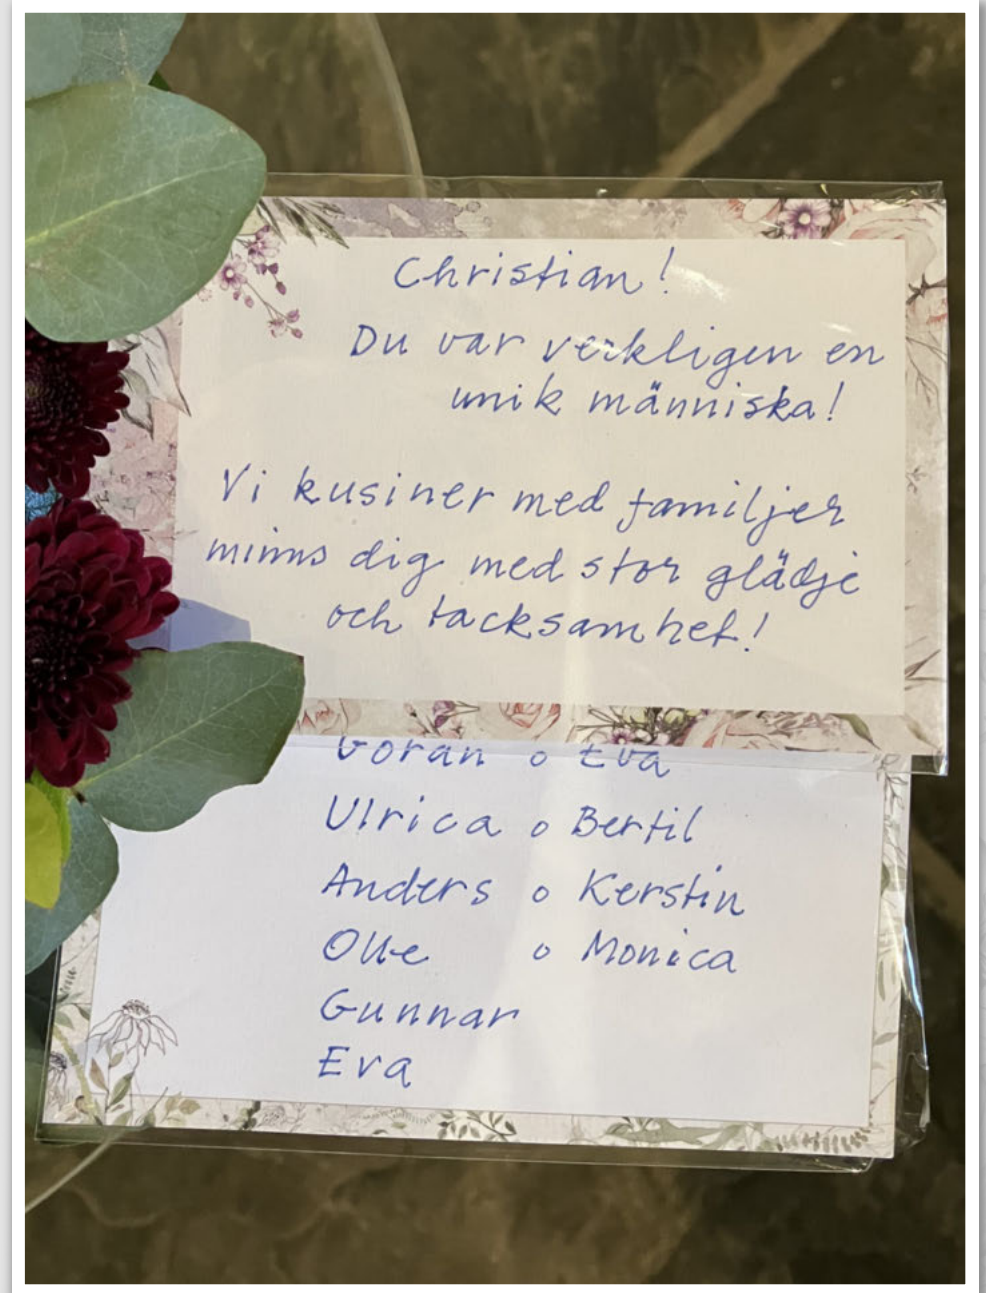 Christian!
Du var verkligen en
unik människa!
Vi kusiner med familjer
minns dig med stor glädje
och tacksamhet!
Göran o Eva
Ulrica o Bertil
Anders o Kerstin
Olle o Monica
Gunnar
Eva